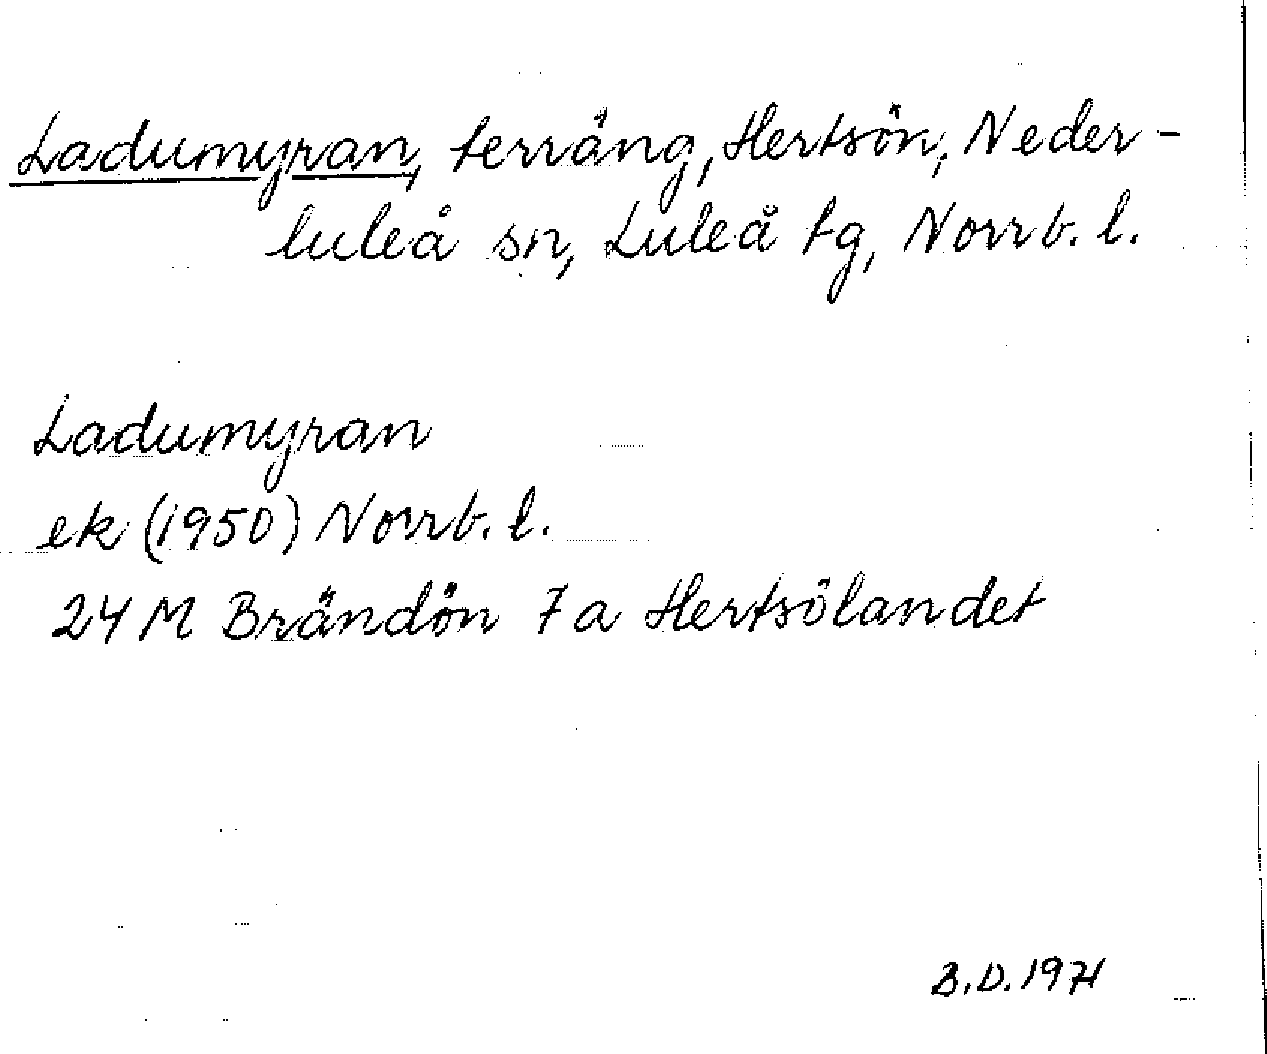 Ladumyran, terräng, Hertsön, Neder-
luleå sn, Luleå tg, Norrb. l.
Ladumyran
ek (1950) Norrb. l.
24 M Brändön 7 a Hertsölandet
B.D. 1971